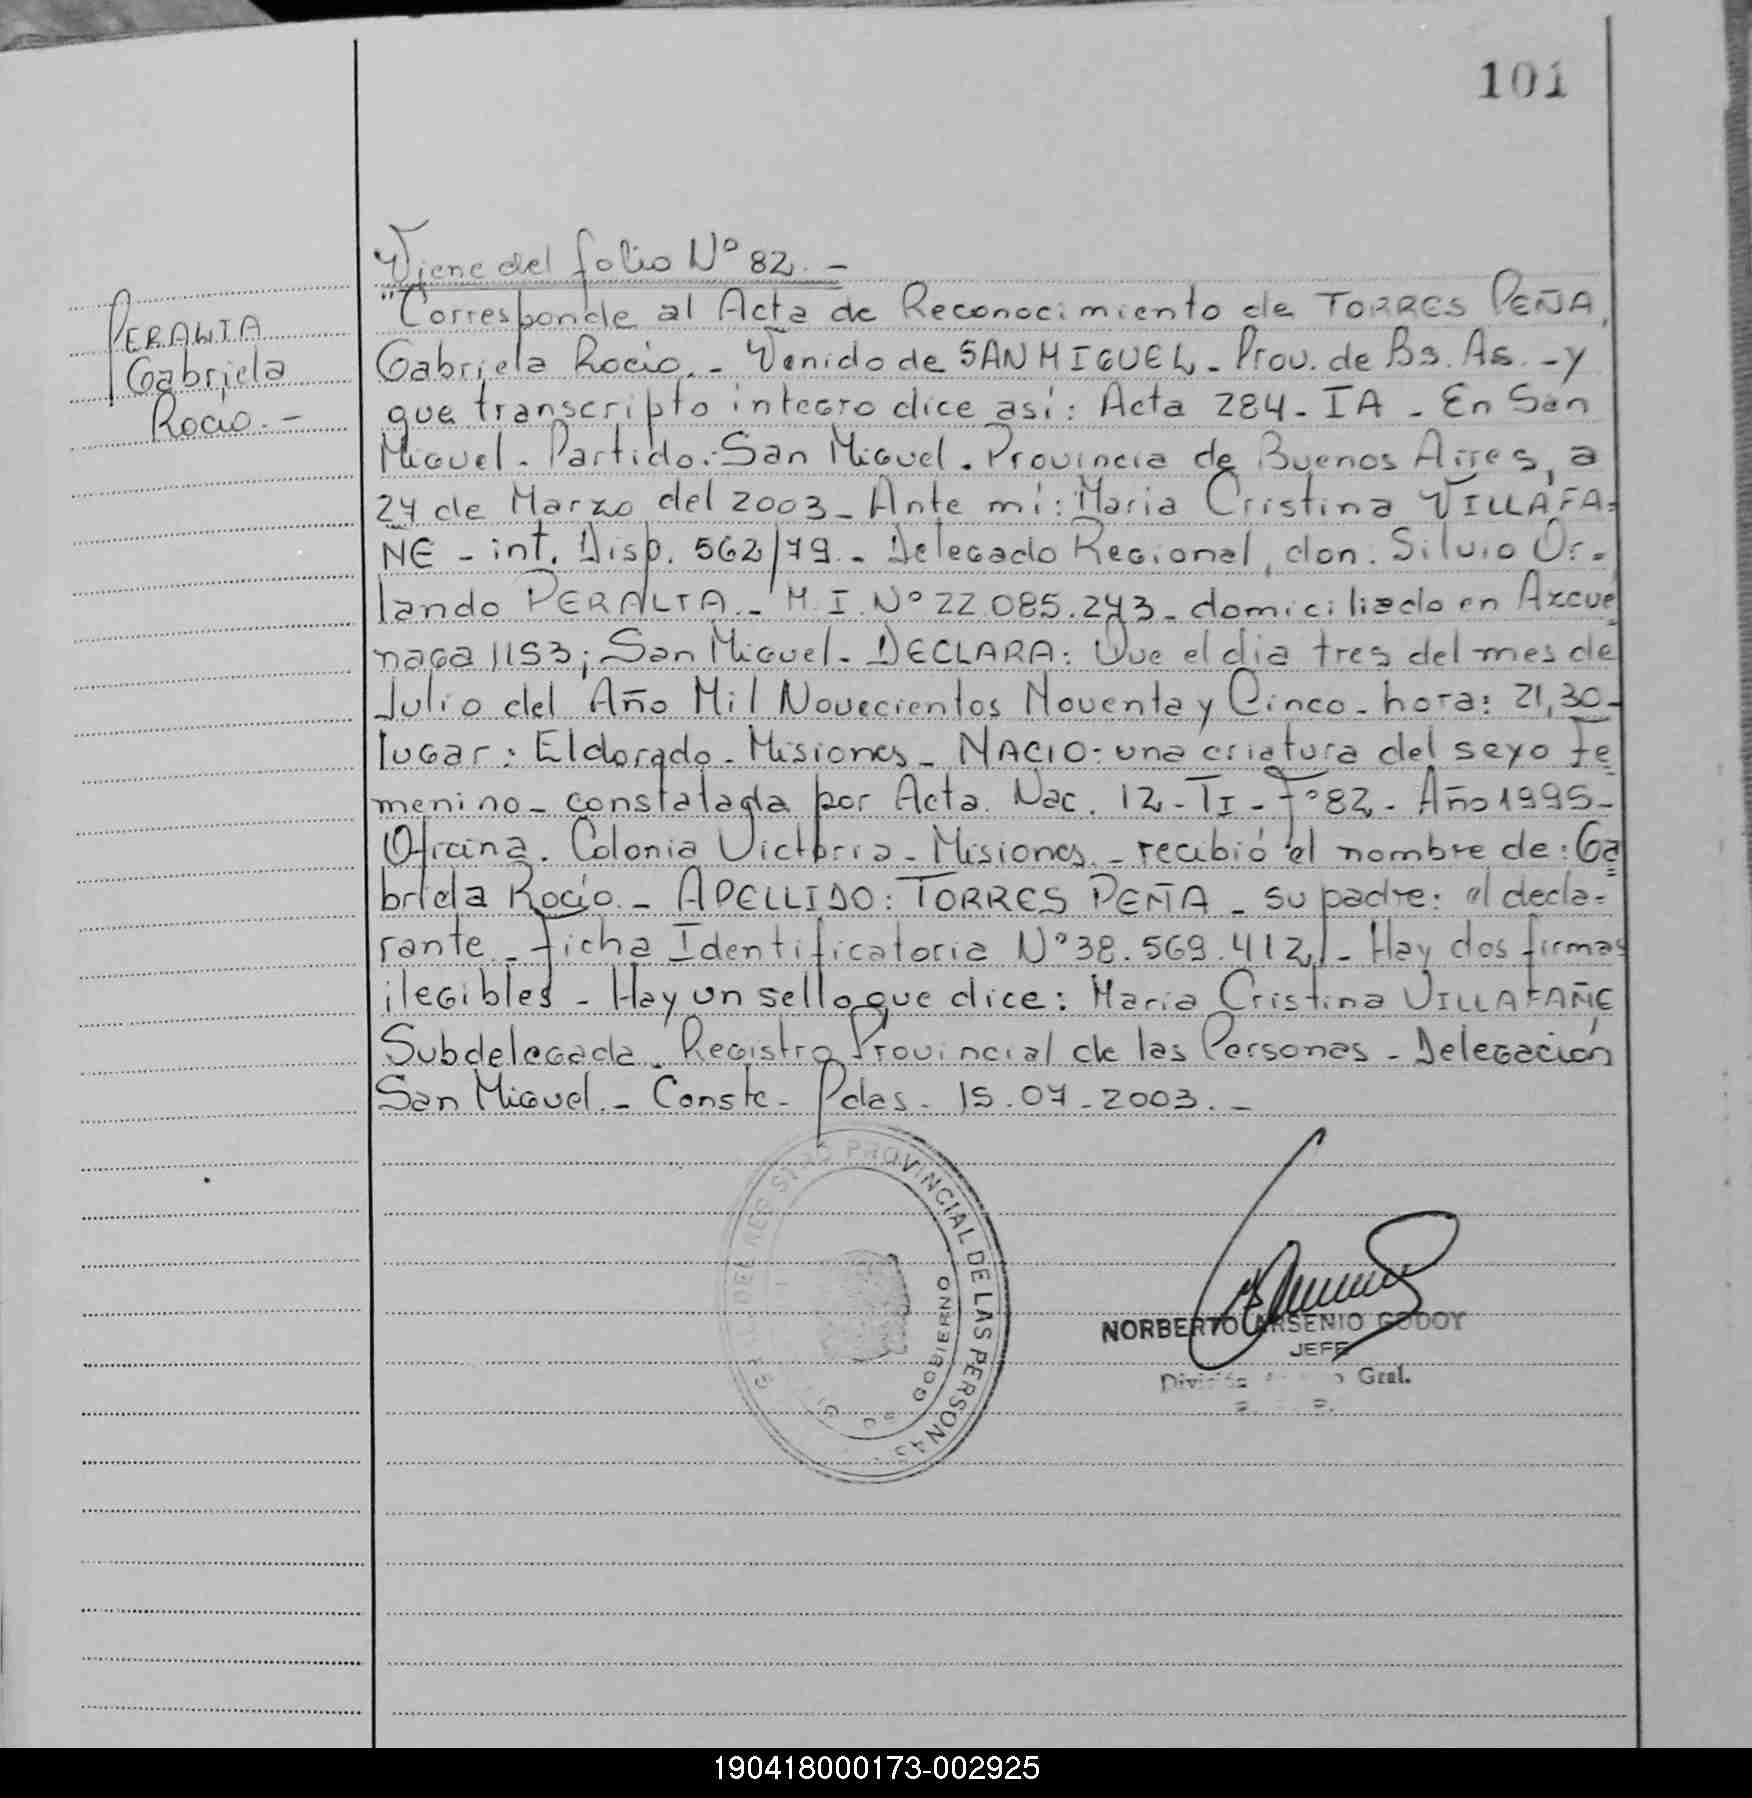 101
Viene del folio Nº 82. -
"Corresponde al Acta de Reconocimiento de TORRES PEÑA,
PERALTA
Gabriela Rocio. - Venido de SAN MIGUEL - Prov. de Bs. As. - y
Gabriela
que transcripto integro dice así: Acta 284 - IA - En San
Rocio. -
Miguel - Partido: San Miguel - Provincia de Buenos Aires, a
24 de Marzo del 2003 - Ante mí: Maria Cristina VILLAFA-
ÑE - int. Disp. 562/79 - Delegado Regional, don: Silvio Or-
lando PERALTA - M.I. Nº 22.085.243 - domiciliado en Azcue
naga 1153; San Miguel - DECLARA: Que el dia tres del mes de
Julio del Año Mil Novecientos Noventa y Cinco - hora: 21,30 -
lugar: Eldorado - Misiones - NACIO: una criatura del sexo Fe
menino - constatada por Acta. Nac. 12 - TI - Fº 82 - Año 1995 -
Oficina. Colonia Victoria - Misiones. - recibió el nombre de: Ga
briela Rocio. - APELLIDO: TORRES PEÑA - su padre: el decla-
rante - Ficha Identificatoria Nº 38.569.412/ - Hay dos firmas
ilegibles - Hay un sello que dice: Maria Cristina VILLAFAÑE
Subdelegada - Registro Provincial de las Personas - Delegación
San Miguel. - Conste - Pdas - 15.07.2003. -
DEL REGISTRO PROVINCIAL DE LAS PERSONAS
GOBIERNO
NORBERTO ARSENIO GODOY
JEFE
División Gral.
190418000173-002925